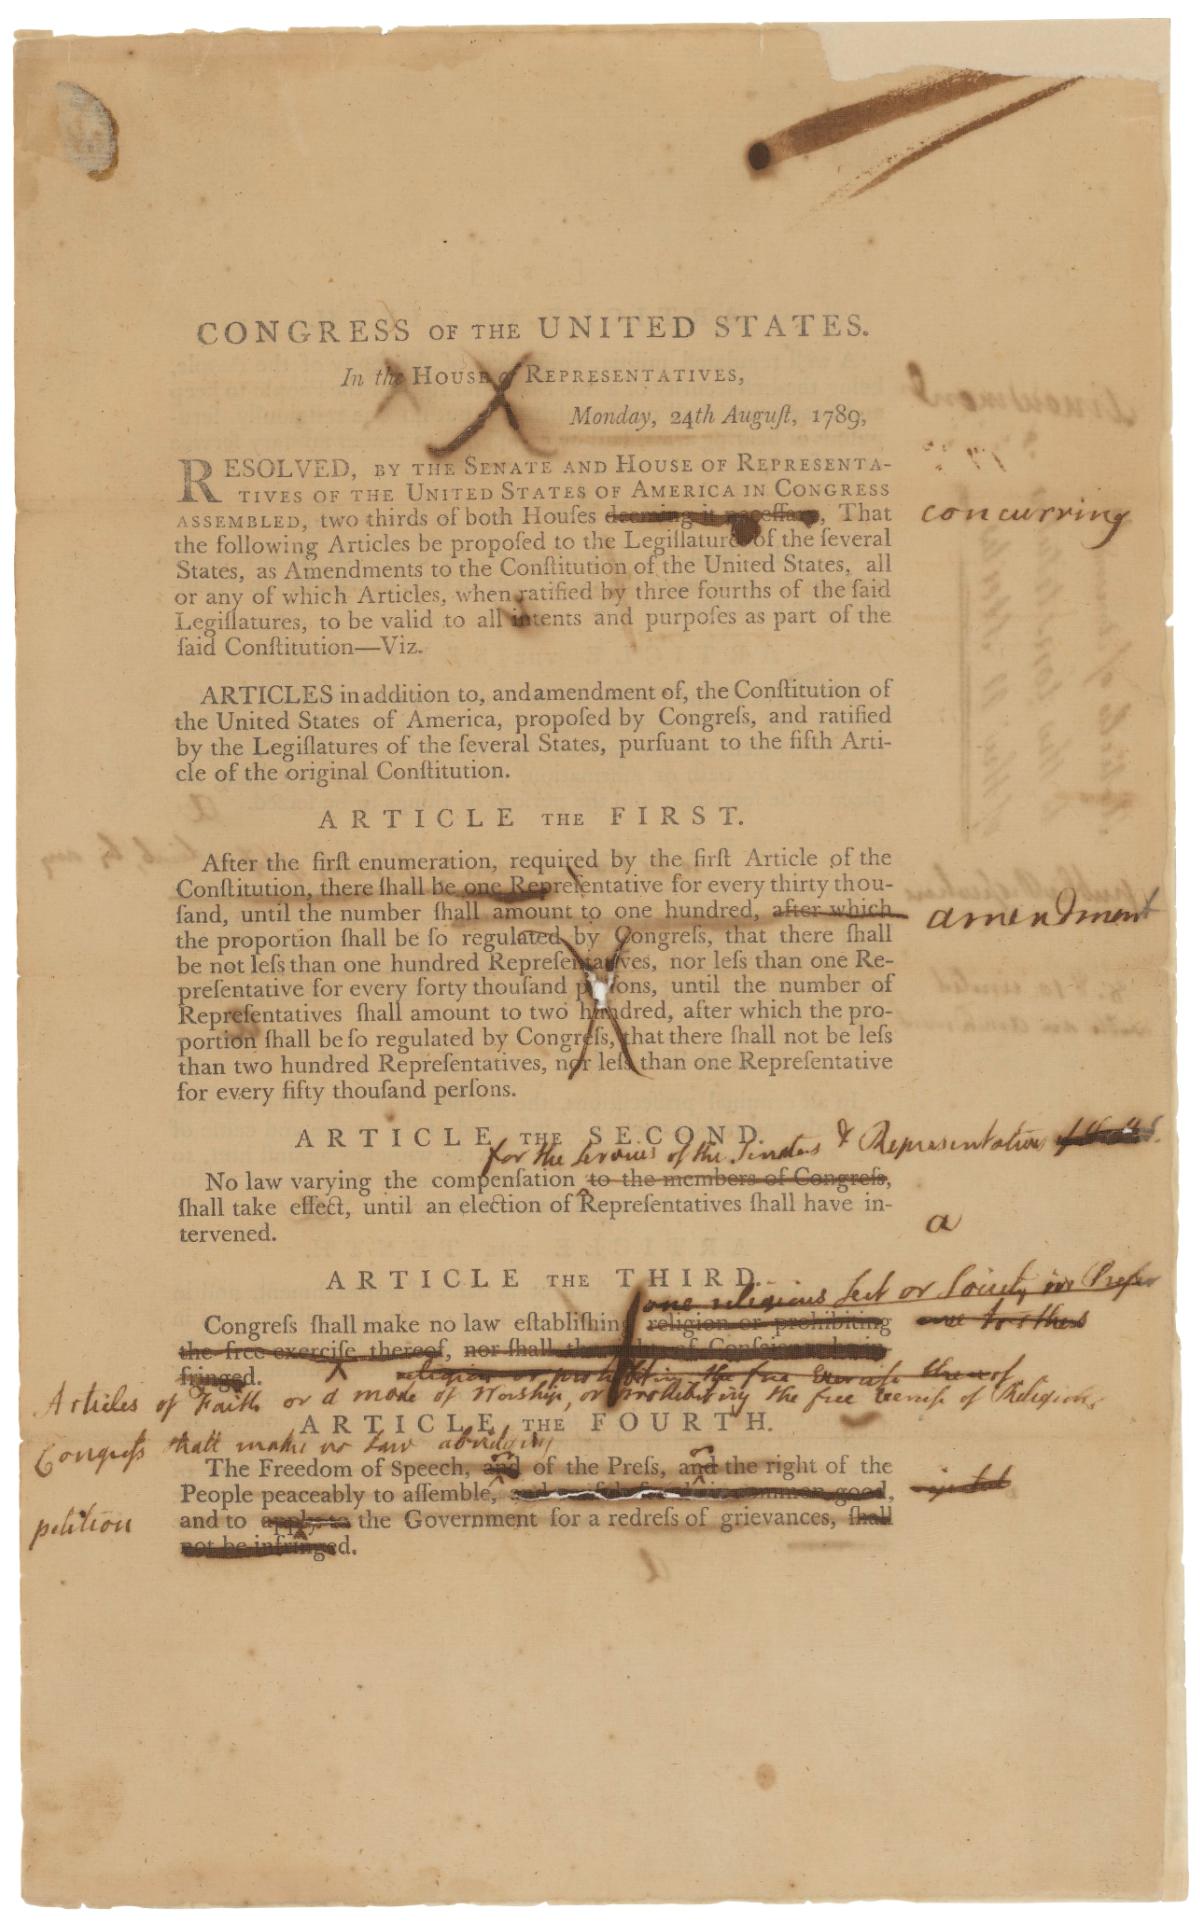 CONGRESS OF THE UNITED STATES.
In the HOUSE of REPRESENTATIVES,
Monday, 24th Auguſt, 1789,
RESOLVED, BY THE SENATE AND HOUSE OF REPRESENTA-
TIVES OF THE UNITED STATES OF AMERICA IN CONGRESS
ASSEMBLED, two thirds of both Houſes deeming it neceſſary, That concurring
the following Articles be propoſed to the Legiſlatures of the ſeveral
States, as Amendments to the Conſtitution of the United States, all
or any of which Articles, when ratified by three fourths of the ſaid
Legiſlatures, to be valid to all intents and purpoſes as part of the
ſaid Conſtitution—Viz.
ARTICLES in addition to, and amendment of, the Conſtitution of
the United States of America, propoſed by Congreſs, and ratified
by the Legiſlatures of the ſeveral States, purſuant to the fifth Arti-
cle of the original Conſtitution.
ARTICLE THE FIRST.
After the firſt enumeration, required by the firſt Article of the
Conſtitution, there ſhall be one Repreſentative for every thirty thou-
ſand, until the number ſhall amount to one hundred, after which amendment
the proportion ſhall be ſo regulated by Congreſs, that there ſhall
be not leſs than one hundred Repreſentatives, nor leſs than one Re-
preſentative for every forty thouſand perſons, until the number of
Repreſentatives ſhall amount to two hundred, after which the pro-
portion ſhall be ſo regulated by Congreſs, that there ſhall not be leſs
than two hundred Repreſentatives, nor leſs than one Repreſentative
for every fifty thouſand perſons.
ARTICLE THE SECOND.
for the services of the Senators & Representatives
No law varying the compenſation to the members of Congreſs,
ſhall take effect, until an election of Repreſentatives ſhall have in-
tervened.
a
ARTICLE THE THIRD.
one religious Sect or Society in
Congreſs ſhall make no law eſtabliſhing religion or prohibiting
the free exerciſe thereof, nor ſhall the rights of Conſcience be in-
fringed. religion or prohibiting the free exercise thereof
Articles of Faith or a mode of Worship, or prohibiting the free exercise of Religion,
ARTICLE THE FOURTH.
Congreſs shall make no Law abridging
The Freedom of Speech, and of the Preſs, and the right of the
People peaceably to aſſemble, common good,
petition and to apply to the Government for a redreſs of grievances, ſhall
not be infringed.